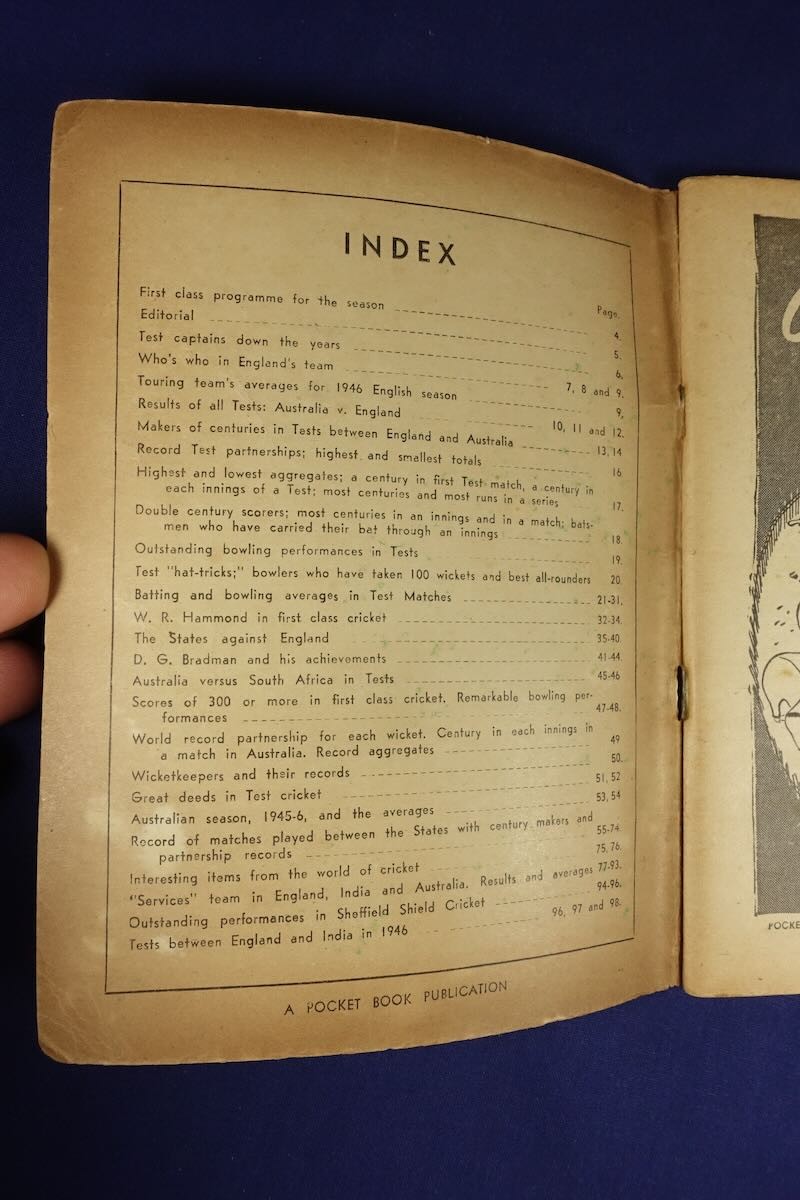 INDEX
Page.
First class programme for the season 4.
Editorial 5.
Test captains down the years 6.
Who's who in England's team 7, 8 and 9.
Touring team's averages for 1946 English season 9,
Results of all Tests: Australia v. England 10, 11 and 12.
Makers of centuries in Tests between England and Australia 13, 14
Record Test partnerships; highest and smallest totals 16
Highest and lowest aggregates; a century in first Test match, a century in
each innings of a Test; most centuries and most runs in a series 17.
Double century scorers; most centuries in an innings and in a match; bats-
men who have carried their bat through an innings 18.
Outstanding bowling performances in Tests 19.
Test "hat-tricks;" bowlers who have taken 100 wickets and best all-rounders 20
Batting and bowling averages in Test Matches 21-31.
W. R. Hammond in first class cricket 32-34.
The States against England 35-40.
D. G. Bradman and his achievements 41-44.
Australia versus South Africa in Tests 45-46
Scores of 300 or more in first class cricket. Remarkable bowling per-
formances 47-48.
World record partnership for each wicket. Century in each innings in
a match in Australia. Record aggregates 49
Wicketkeepers and their records 50.
Great deeds in Test cricket 51, 52
Australian season, 1945-6, and the averages 53, 54
Record of matches played between the States with century makers and
partnership records 55-74.
Interesting items from the world of cricket 75, 76.
"Services" team in England, India and Australia. Results and averages 77-93.
Outstanding performances in Sheffield Shield Cricket 94-96.
Tests between England and India in 1946 96, 97 and 98.
A POCKET BOOK PUBLICATION
POCKE